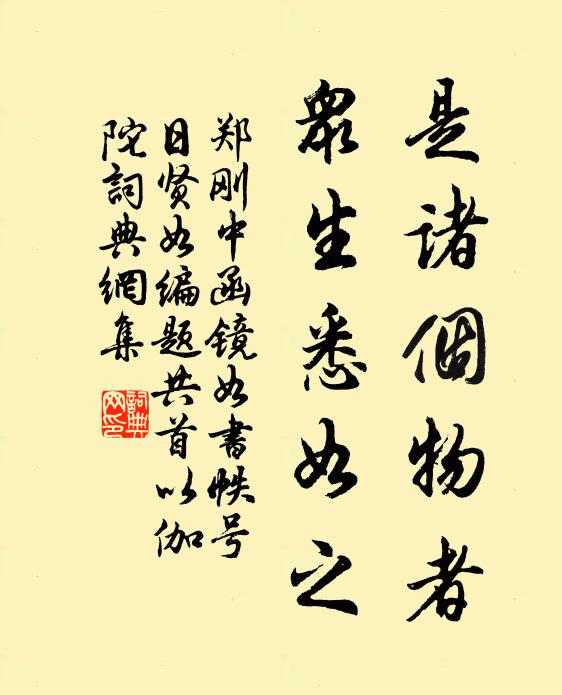 是諸個物者
眾生悉如之
郑刚中函镜如书帙号
日贤如编题其首以伽
陀詞典網集
詞典网印